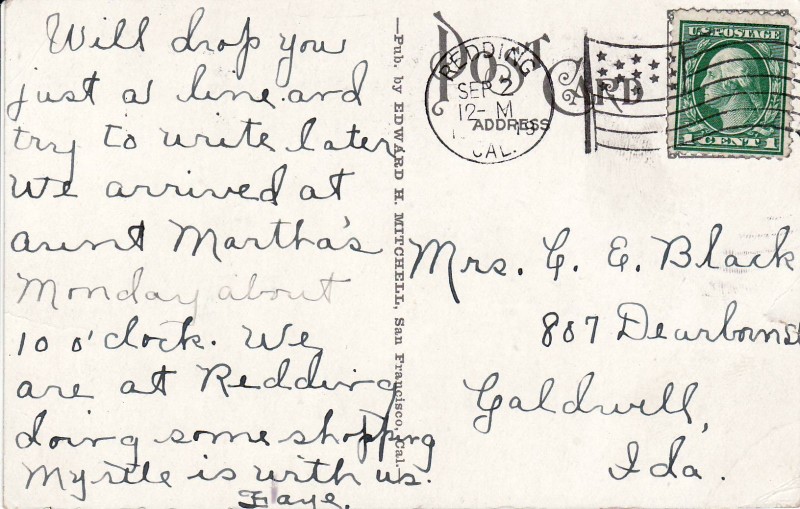 Will drop you
just a line and
try to write later
We arrived at
aunt Martha's
Monday about
10 o'clock. We
are at Redding
doing some shopping
Myrtle is with us.
Faye.
—Pub. by EDWARD H. MITCHELL, San Francisco, Cal.—
POST CARD
ADDRESS
REDDING
SEP 2
12-M
CAL.
U.S. POSTAGE
1 CENT 1
Mrs. C. E. Black
807 Dearborn St
Caldwell,
Ida.